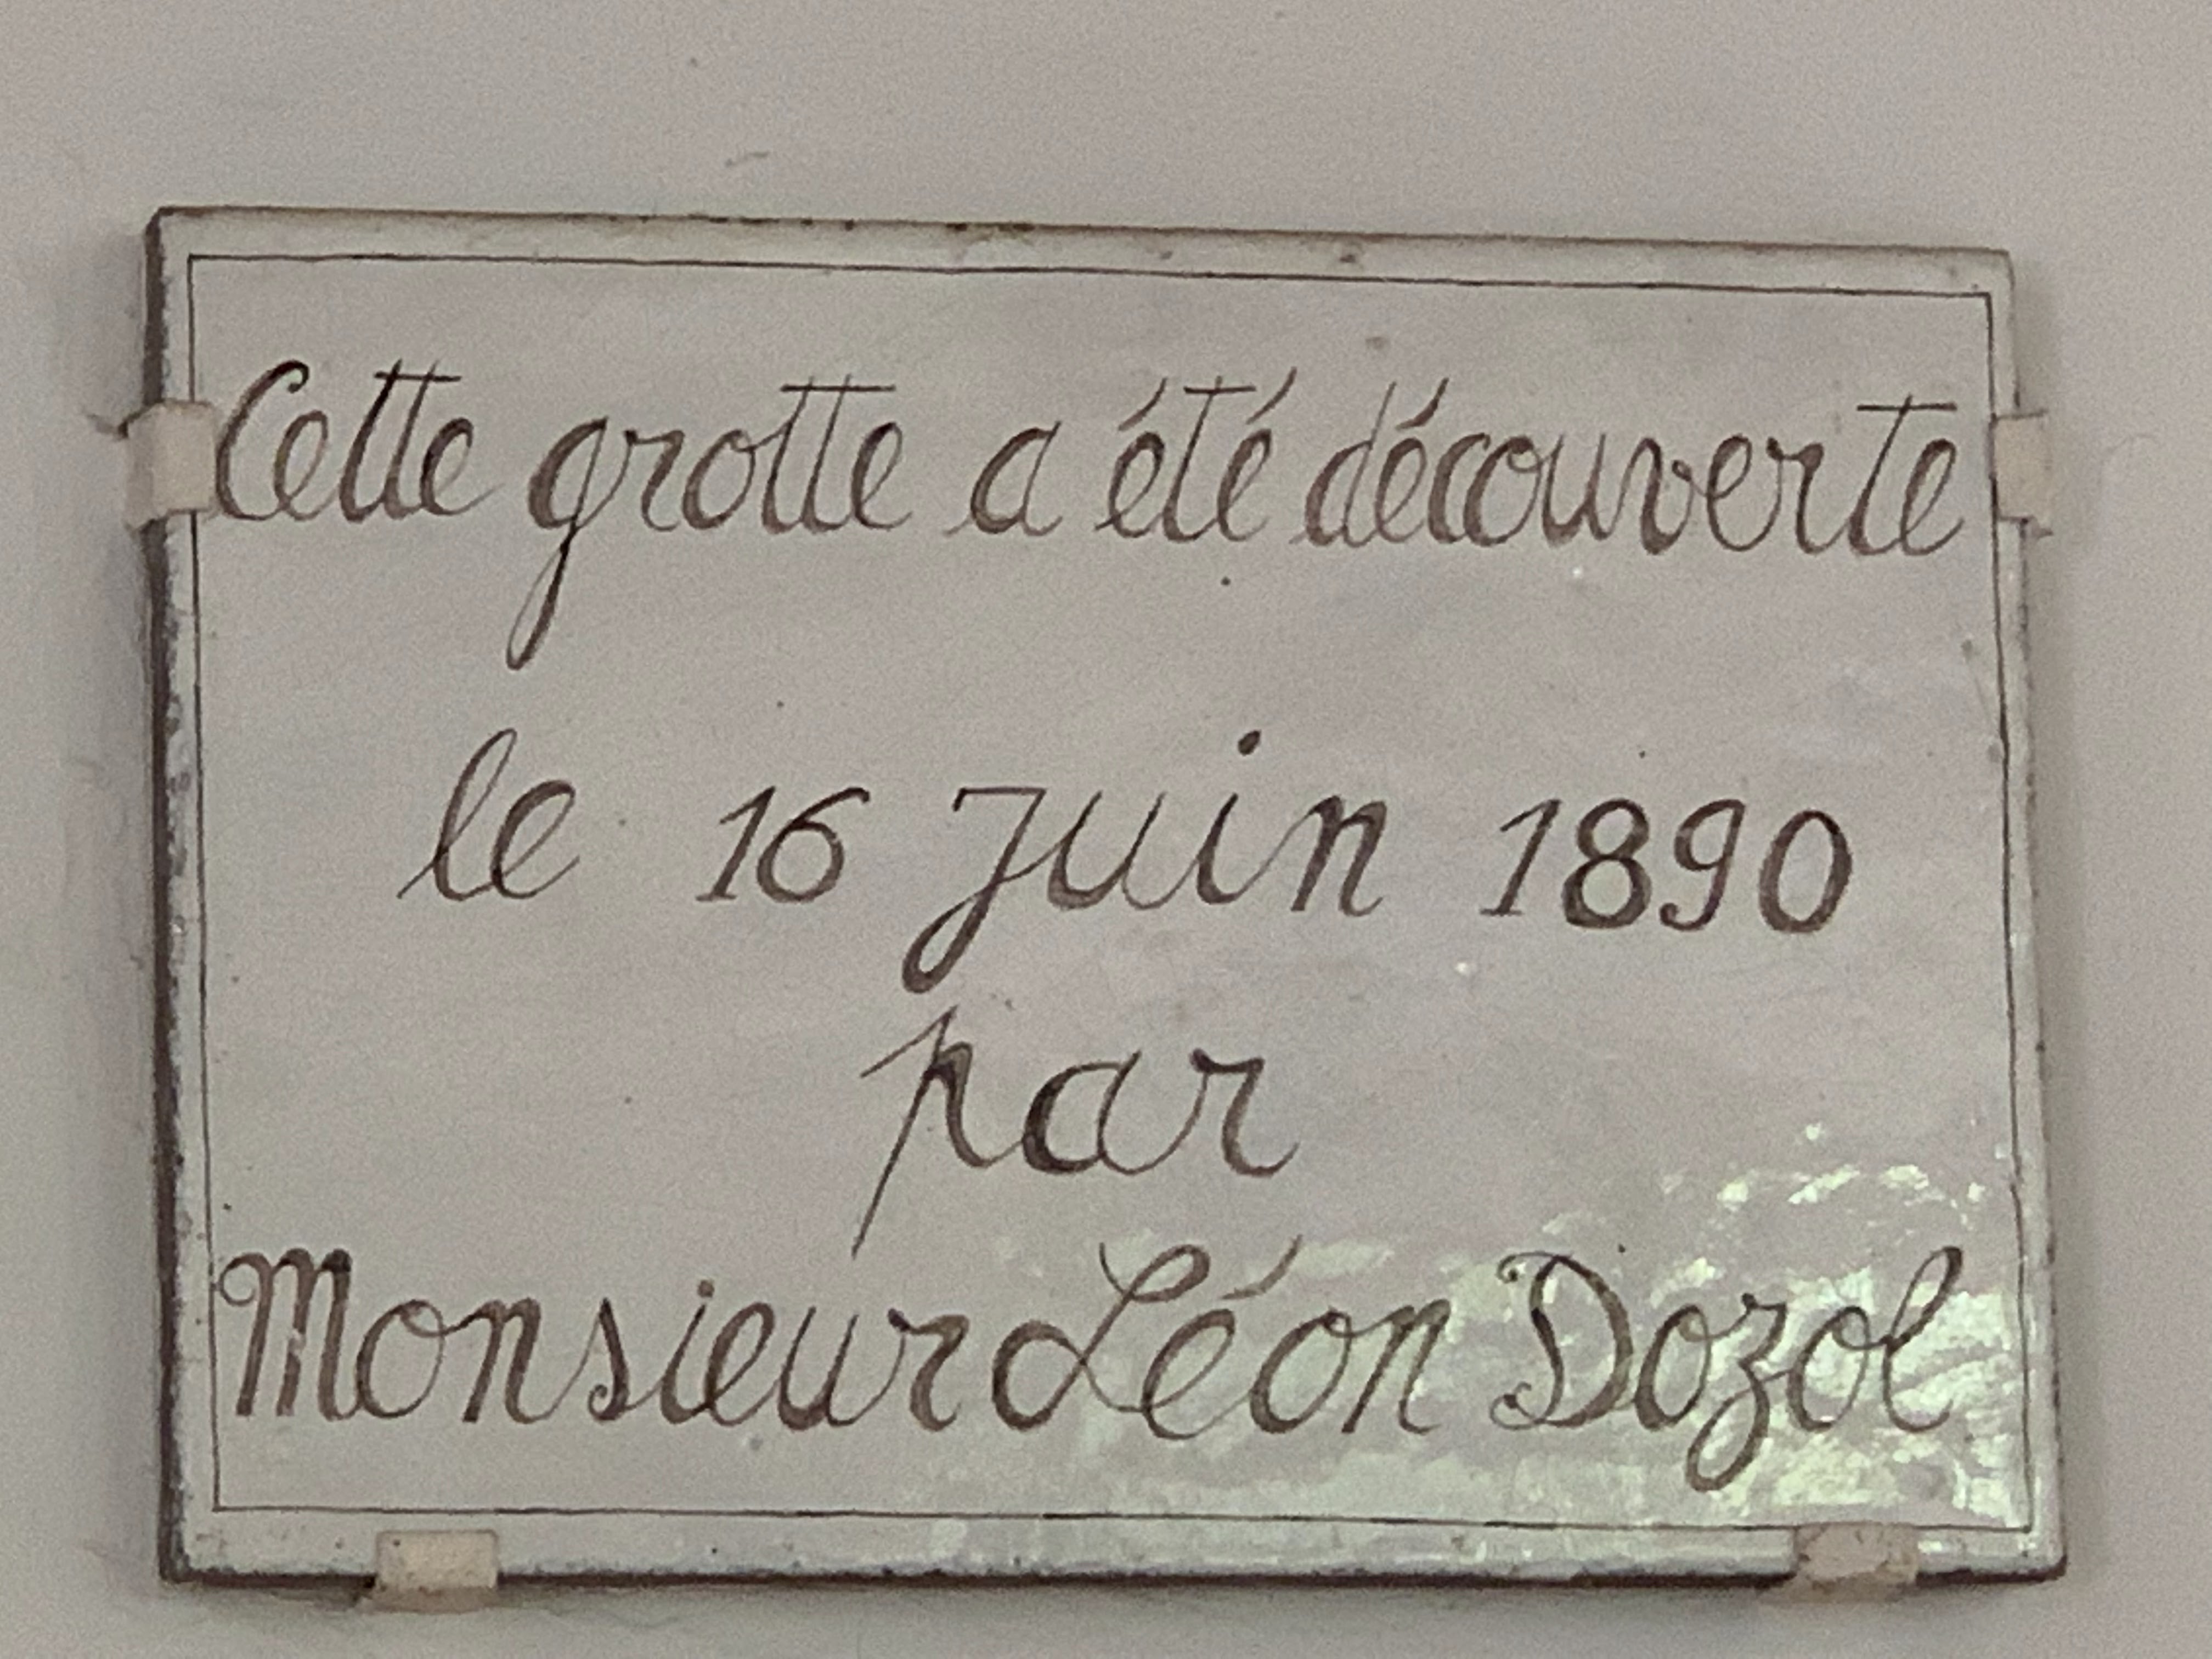 Cette grotte a été découverte
le 16 Juin 1890
par
Monsieur Léon Dozol